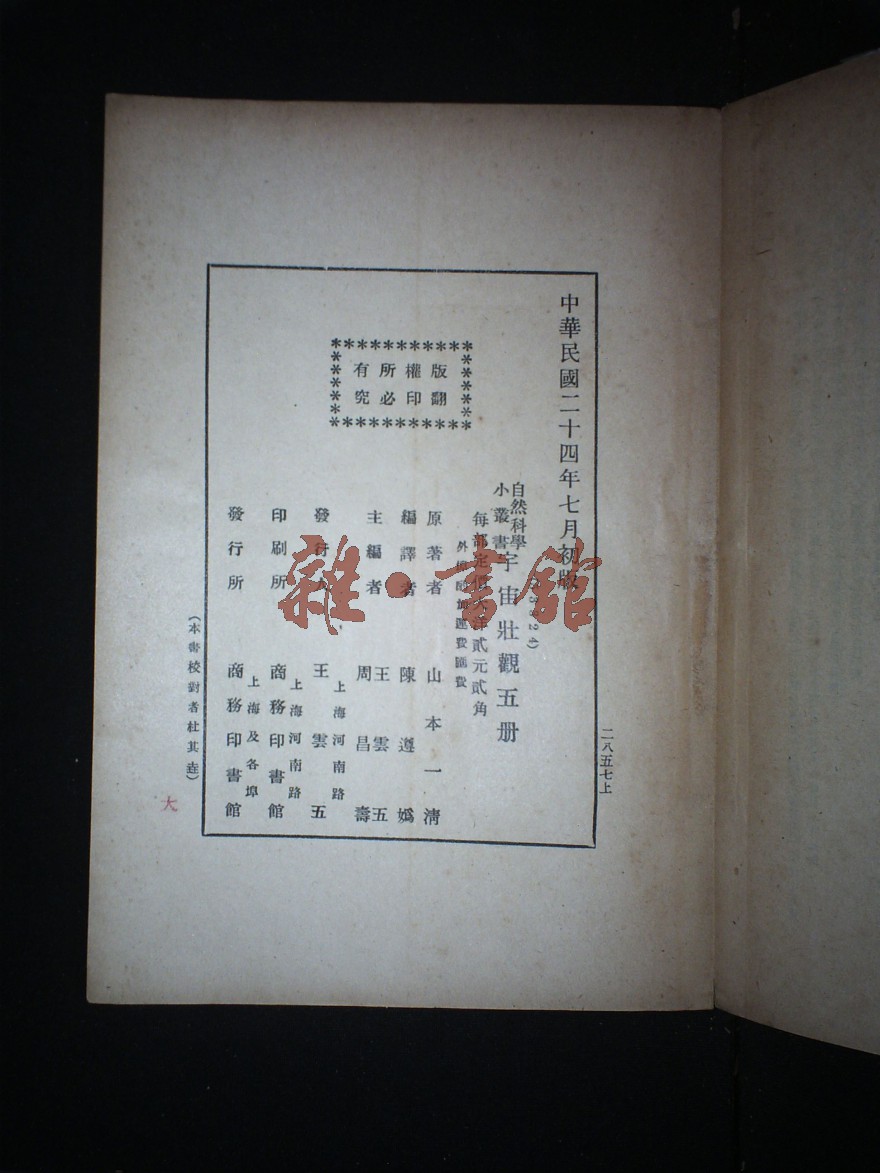 中華民國二十四年七月初版
二八五七上
自然科學
小叢書
宇宙壯觀五册
每部定價大洋貳元貳角
外埠酌加運費匯費
原著者 山本一清
編譯者 陳遵嬀
主編者 王雲五 周昌壽
上海河南路
發行人 王雲五
上海河南路
印刷所 商務印書館
上海及各埠
發行所 商務印書館
版權所有
翻印必究
(本書校對者杜其垚)
大
雜·書館